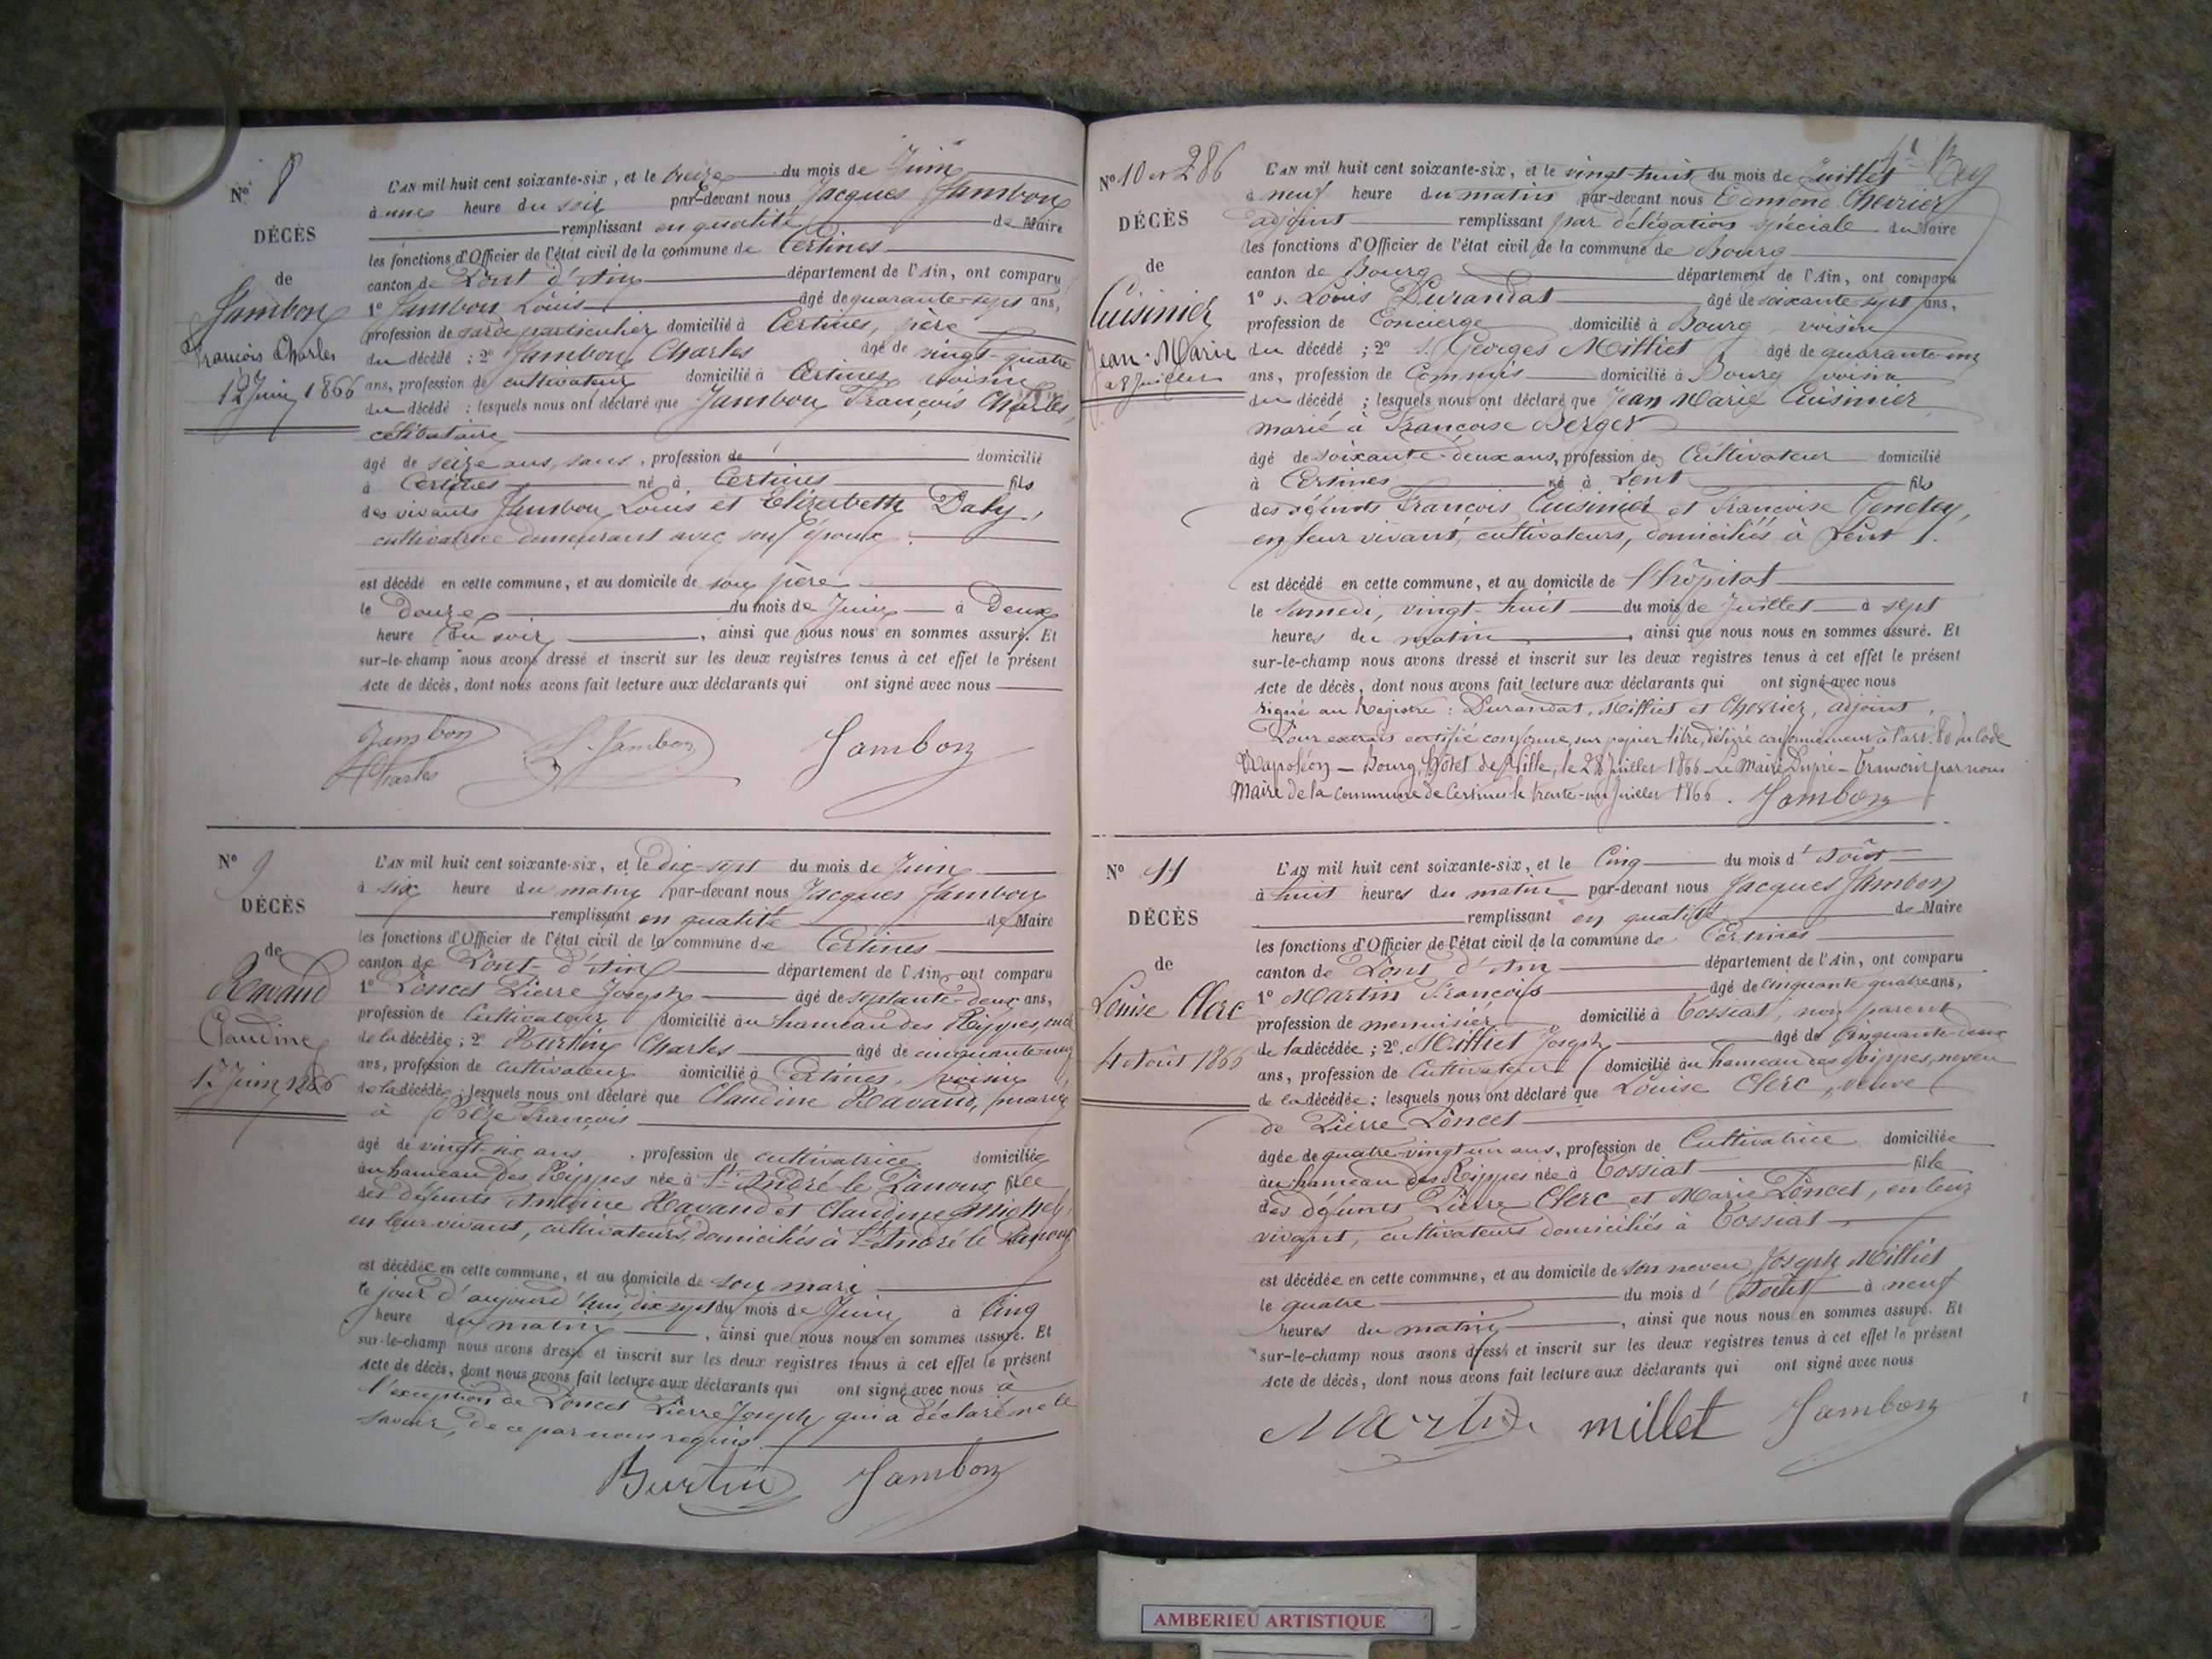 N° 8
DÉCÈS
de
Jambon
François Charles
12 Juin 1866
L'AN mil huit cent soixante-six, et le treize du mois de Juin
à une heure du soir par-devant nous Jacques Jambon
remplissant en qualité de Maire
les fonctions d'Officier de l'état civil de la commune de Certines
canton de Pont d'Ain département de l'Ain, ont comparu
1° Jambon Louis âgé de quarante-sept ans,
profession de garde particulier domicilié à Certines, père
du décédé ; 2° Jambon Charles âgé de vingt-quatre
ans, profession de cultivateur domicilié à Certines voisin
du décédé ; lesquels nous ont déclaré que Jambon François Charles,
célibataire
âgé de seize ans, sans, profession de domicilié
à Certines né à Certines fils
des vivants Jambon Louis et Elizabeth Daly,
cultivatrice demeurant avec son époux.
est décédé en cette commune, et au domicile de son père
le Douze du mois de Juin à Deux
heure du soir, ainsi que nous nous en sommes assuré. Et
sur-le-champ nous avons dressé et inscrit sur les deux registres tenus à cet effet le présent
Acte de décès, dont nous avons fait lecture aux déclarants qui ont signé avec nous
Jambon
Charles
L. Jambon
Jambon
N° 9
DÉCÈS
de
Ravaud
Claudine
17 Juin 1866
L'AN mil huit cent soixante-six, et le dix-sept du mois de Juin
à six heure du matin par-devant nous Jacques Jambon
remplissant en qualité de Maire
les fonctions d'Officier de l'état civil de la commune de Certines
canton de Pont-d'Ain département de l'Ain, ont comparu
1° Poncet Pierre Joseph âgé de septante-deux ans,
profession de Cultivateur domicilié au hameau des Rippes,
de la décédée ; 2° Burtin Charles âgé de cinquante-neuf
ans, profession de cultivateur domicilié à Certines, voisin
de la décédée ; lesquels nous ont déclaré que Claudine Ravaud, mariée
à François
âgé de vingt-six ans, profession de cultivatrice domiciliée
au hameau des Rippes née à St André le Panoux fille
des défunts Antoine Ravaud et Claudine Michel,
en leur vivant, cultivateurs, domiciliés à St André le Panoux
est décédée en cette commune, et au domicile de son mari
le jour d'aujourd'hui, dix-sept du mois de Juin à Cinq
heure du matin, ainsi que nous nous en sommes assuré. Et
sur-le-champ nous avons dressé et inscrit sur les deux registres tenus à cet effet le présent
Acte de décès, dont nous avons fait lecture aux déclarants qui ont signé avec nous à
l'exception de Poncet Pierre Joseph qui a déclaré ne le
savoir, de ce par nous requis
Burtin Jambon
N° 10 et 286
DÉCÈS
de
Cuisinier
Jean-Marie
28 Juillet
L'AN mil huit cent soixante-six, et le vingt-huit du mois de Juillet
à neuf heure du matin par-devant nous Edmond Chevrier
adjoint remplissant par délégation spéciale du Maire
les fonctions d'Officier de l'état civil de la commune de Bourg
canton de Bourg département de l'Ain, ont comparu
1° s. Louis Durandat âgé de soixante-sept ans,
profession de Concierge domicilié à Bourg voisin
du décédé ; 2° s. Georges Milliet âgé de quarante-cinq
ans, profession de Commis domicilié à Bourg voisin
du décédé ; lesquels nous ont déclaré que Jean Marie Cuisinier
marié à Françoise Berger
âgé de soixante-deux ans, profession de Cultivateur domicilié
à Certines né à Lent fils
des défunts François Cuisinier et Françoise
en leur vivant, cultivateurs, domiciliés à Lent.
est décédé en cette commune, et au domicile de l'hôpital
le Samedi, vingt-huit du mois de Juillet à sept
heures du matin, ainsi que nous nous en sommes assuré. Et
sur-le-champ nous avons dressé et inscrit sur les deux registres tenus à cet effet le présent
Acte de décès, dont nous avons fait lecture aux déclarants qui ont signé avec nous
Signé au Registre : Durandat, Milliet et Chevrier, adjoint,
Pour extrait certifié conforme, sur papier libre, délivré conformément à l'art. 80 du Code
Napoléon — Bourg, Hôtel de Ville, le 28 Juillet 1866 — Le Maire Dupré — Transcrit par nous
Maire de la commune de Certines le trente-un Juillet 1866. Jambon
N° 11
DÉCÈS
de
Louise Clerc
4 Août 1866
L'AN mil huit cent soixante-six, et le Cinq du mois d'Août
à huit heures du matin par-devant nous Jacques Jambon
remplissant en qualité de Maire
les fonctions d'Officier de l'état civil de la commune de Certines
canton de Pont d'Ain département de l'Ain, ont comparu
1° Martin François âgé de Cinquante quatre ans,
profession de menuisier domicilié à Tossiat, non parent
de la décédée ; 2° Milliet Joseph âgé de Cinquante-deux
ans, profession de Cultivateur domicilié au hameau des Rippes, neveu
de la décédée ; lesquels nous ont déclaré que Louise Clerc, veuve
de Pierre Poncet
âgée de quatre-vingt un ans, profession de Cultivatrice domiciliée
au hameau des Rippes née à Tossiat fille
des défunts Pierre Clerc et Marie Poncet, en leur
vivant, cultivateurs domiciliés à Tossiat
est décédée en cette commune, et au domicile de son neveu Joseph Milliet
le quatre du mois d'Août à neuf
heures du matin, ainsi que nous nous en sommes assuré. Et
sur-le-champ nous avons dressé et inscrit sur les deux registres tenus à cet effet le présent
Acte de décès, dont nous avons fait lecture aux déclarants qui ont signé avec nous
Martin millet Jambon
AMBERIEU ARTISTIQUE